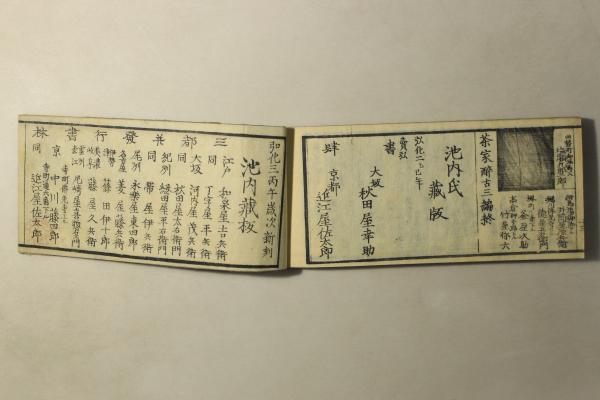 茶家酔古三編終
池内氏
藏版
弘化二乙巳年
賣弘
書
肆
大坂
秋田屋幸助
京都
近江屋佐太郎
弘化三丙午歳次新刻
池内藏板
三都共發行書林
江戸 和泉屋吉兵衛
同 丁字屋平兵衛
大坂 河内屋茂兵衛
同 秋田屋太右衛門
紀州 綛田屋平右衛門
同 帯屋伊兵衛
尾州 永樂屋東四郎
名古屋 菱屋藤兵衛
伊勢 篠田伊十郎
岐阜 藤屋久兵衛
尾崎屋喜惣右衛門
京 中川藤四郎
同 近江屋佐太郎